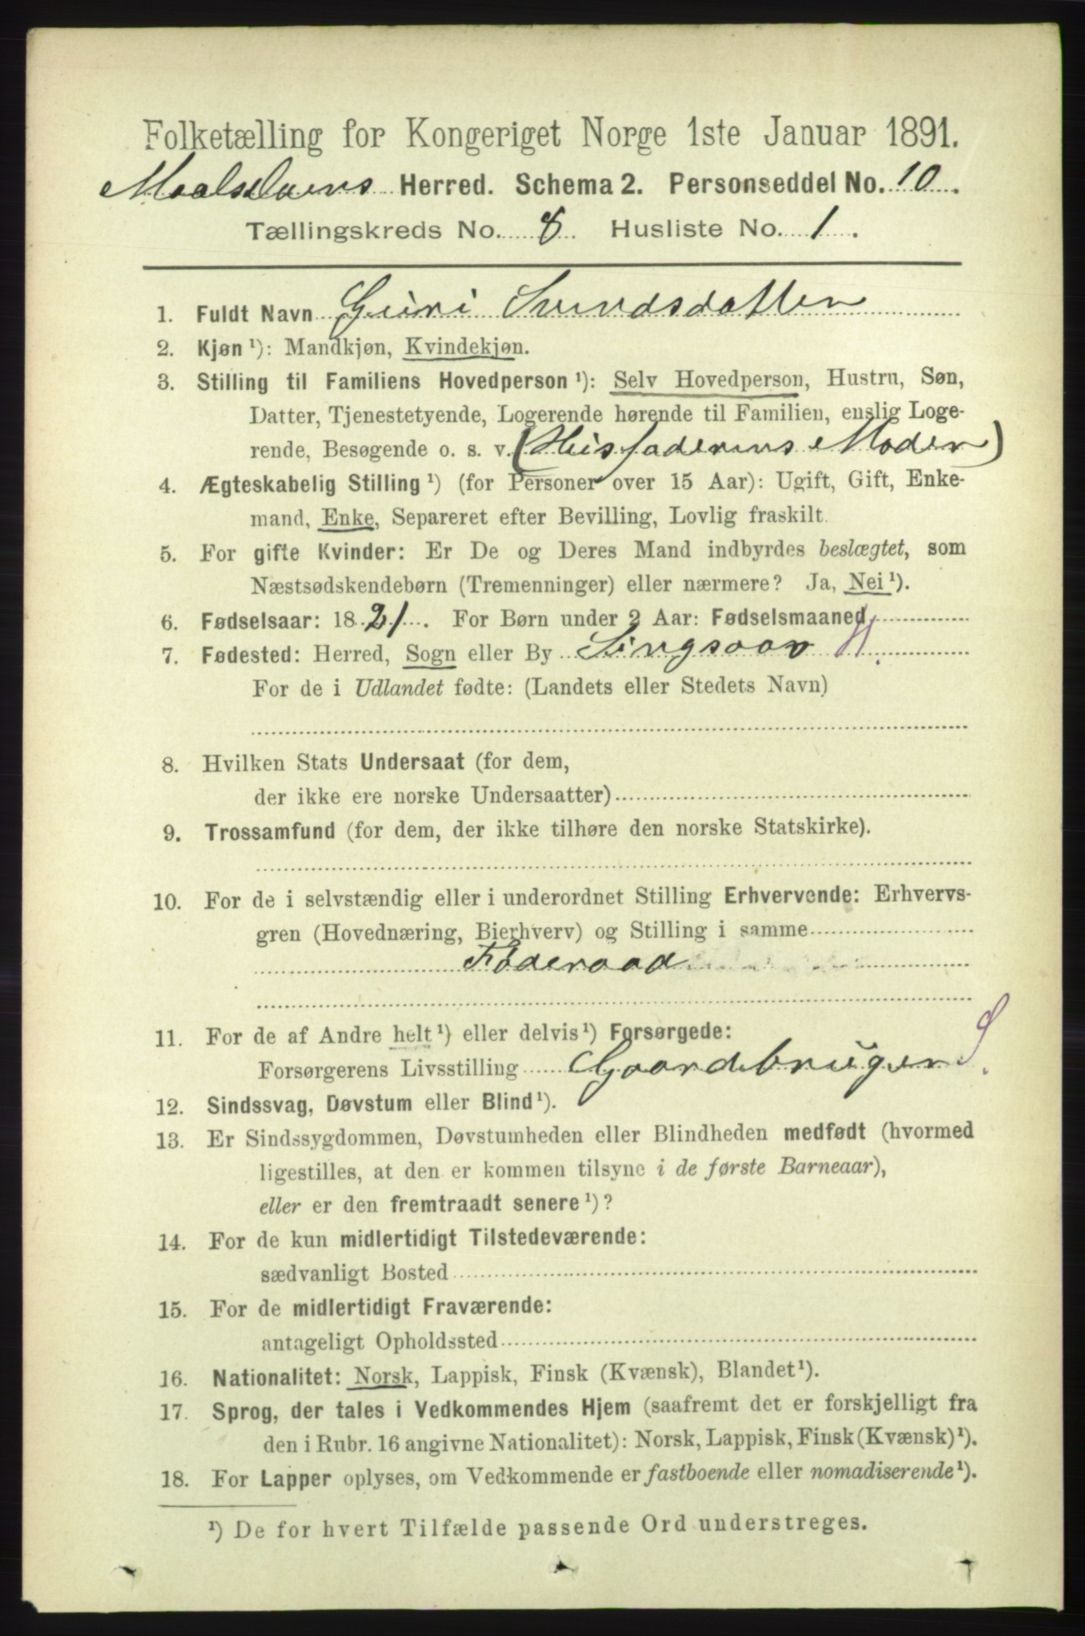 Folketælling for Kongeriget Norge 1ste Januar 1891.
Maalselvens Herred. Schema 2. Personseddel No. 10.
Tællingskreds No. 8 Husliste No. 1.
1. Fuldt Navn Guri Svendsdatter
2. Kjøn ¹): Mandkjøn, Kvindekjøn.
3. Stilling til Familiens Hovedperson ¹): Selv Hovedperson, Hustru, Søn,
Datter, Tjenestetyende, Logerende hørende til Familien, enslig Loge-
rende, Besøgende o. s. v. (Husfaderens Moder)
4. Ægteskabelig Stilling ¹) (for Personer over 15 Aar): Ugift, Gift, Enke-
mand, Enke, Separeret efter Bevilling, Lovlig fraskilt.
5. For gifte Kvinder: Er De og Deres Mand indbyrdes beslægtet, som
Næstsødskendebørn (Tremenninger) eller nærmere? Ja, Nei ¹).
6. Fødselsaar: 1821. For Børn under 2 Aar: Fødselsmaaned
7. Fødested: Herred, Sogn eller By Singsaas
For de i Udlandet fødte: (Landets eller Stedets Navn)
8. Hvilken Stats Undersaat (for dem,
der ikke ere norske Undersaatter)
9. Trossamfund (for dem, der ikke tilhøre den norske Statskirke).
10. For de i selvstændig eller i underordnet Stilling Erhvervende: Erhvervs-
gren (Hovednæring, Bierhverv) og Stilling i samme
Føderaad
11. For de af Andre helt ¹) eller delvis ¹) Forsørgede:
Forsørgerens Livsstilling Gaardbruger S.
12. Sindssvag, Døvstum eller Blind ¹).
13. Er Sindssygdommen, Døvstumheden eller Blindheden medfødt (hvormed
ligestilles, at den er kommen tilsyne i de første Barneaar),
eller er den fremtraadt senere ¹)?
14. For de kun midlertidigt Tilstedeværende:
sædvanligt Bosted
15. For de midlertidigt Fraværende:
antageligt Opholdssted
16. Nationalitet: Norsk, Lappisk, Finsk (Kvænsk), Blandet ¹).
17. Sprog, der tales i Vedkommendes Hjem (saafremt det er forskjelligt fra
den i Rubr. 16 angivne Nationalitet): Norsk, Lappisk, Finsk (Kvænsk) ¹).
18. For Lapper oplyses, om Vedkommende er fastboende eller nomadiserende ¹).
¹) De for hvert Tilfælde passende Ord understreges.